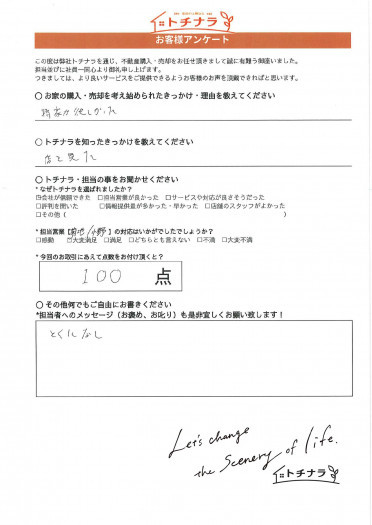 トチナラ
お客様アンケート
この度は弊社トチナラを通じ、不動産購入・売却をお任せ頂きまして誠に有難う御座いました。
担当並びに社員一同心より御礼申し上げます。
つきましては、より良いサービスをご提供できるようお客様のお声を頂戴できればと思います。
○ お家の購入・売却を考え始められたきっかけ・理由を教えてください
○ トチナラを知ったきっかけを教えてください
店で見た
○ トチナラ・担当の事をお聞かせください
* なぜトチナラを選ばれましたか？
☑会社が信頼できた □担当営業が良かった □サービスや対応が良さそうだった
□評判を聞いた □情報提供量が多かった・早かった □店舗のスタッフがよかった
□その他（ ）
* 担当営業【菊地/小野】の対応はいかがでしたでしょうか？
□感動 ☑大変満足 □満足 □どちらとも言えない □不満 □大変不満
* 今回のお取引にあえて点数をお付け頂くと？
100 点
○ その他何でもご自由にお書きください
*担当者へのメッセージ（お褒め、お叱り）も是非宜しくお願い致します！
とくになし
Let's change
the Scenery of life.
トチナラ